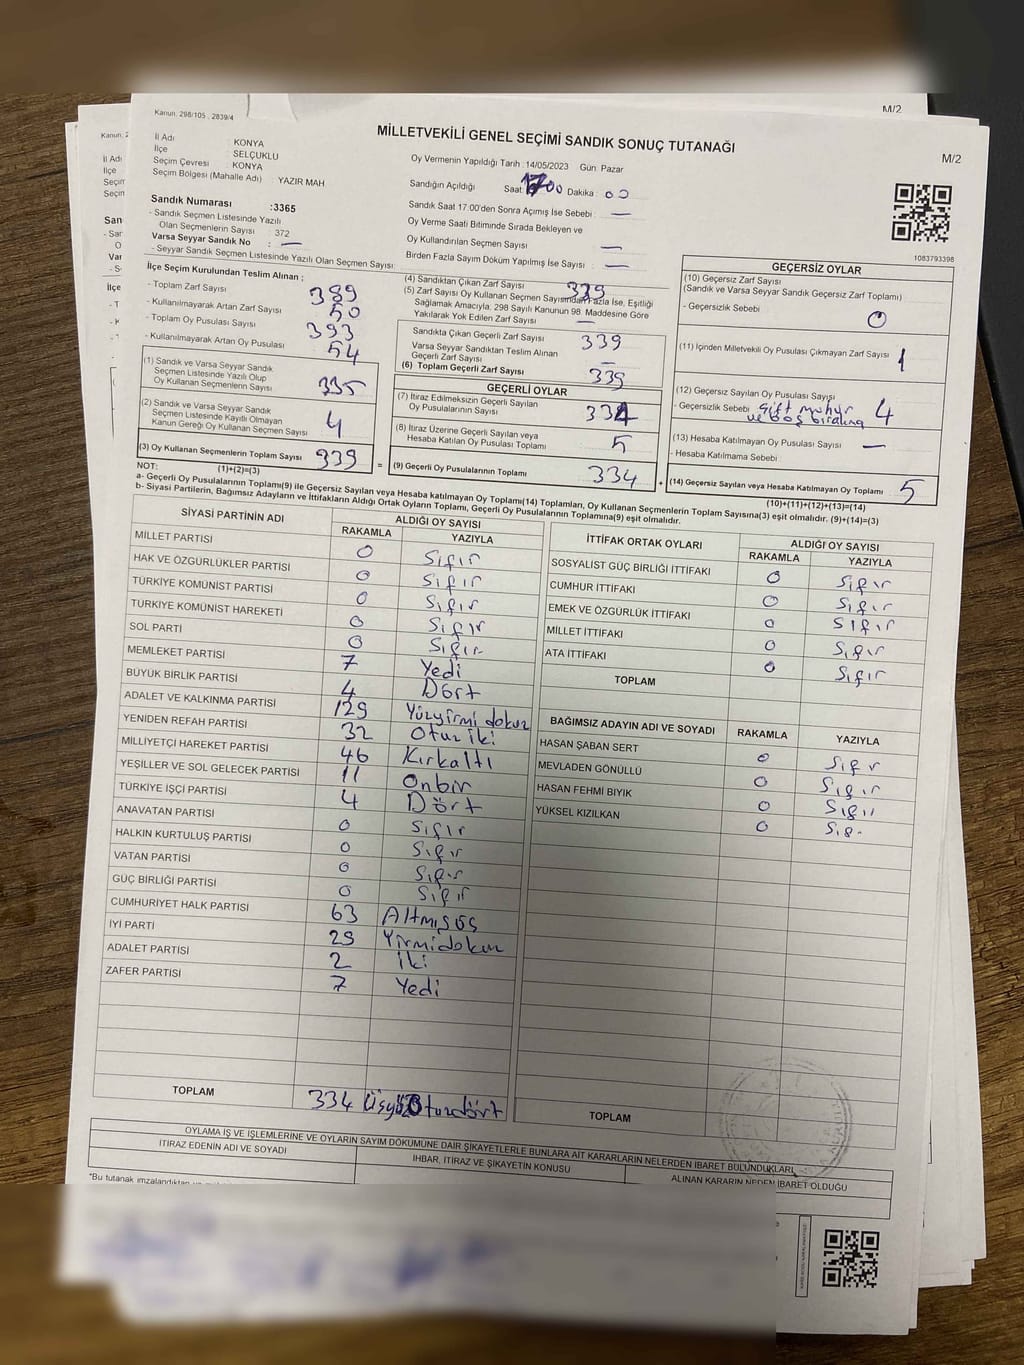 M/2
Kanun: 298/105 , 2839/4
MİLLETVEKİLİ GENEL SEÇİMİ SANDIK SONUÇ TUTANAĞI
M/2
İl Adı : KONYA
İlçe : SELÇUKLU
Seçim Çevresi : KONYA
Seçim Bölgesi (Mahalle Adı) : YAZIR MAH
Sandık Numarası :3365
- Sandık Seçmen Listesinde Yazılı
Olan Seçmenlerin Sayısı : 372
Varsa Seyyar Sandık No : —
- Seyyar Sandık Seçmen Listesinde Yazılı Olan Seçmen Sayısı:
Oy Vermenin Yapıldığı Tarih : 14/05/2023 Gün: Pazar
Sandığın Açıldığı Saat : 1700 Dakika : 00
Sandık Saat 17.00'den Sonra Açımış İse Sebebi : —
Oy Verme Saati Bitiminde Sırada Bekleyen ve
Oy Kullandırılan Seçmen Sayısı —
Birden Fazla Sayım Döküm Yapılmış İse Sayısı : —
1083793398
İlçe Seçim Kurulundan Teslim Alınan ;
- Toplam Zarf Sayısı 389
- Kullanılmayarak Artan Zarf Sayısı 50
- Toplam Oy Pusulası Sayısı 393
- Kullanılmayarak Artan Oy Pusulası 54
(1) Sandık ve Varsa Seyyar Sandık
Seçmen Listesinde Yazılı Olup
Oy Kullanan Seçmenlerin Sayısı 335
(2) Sandık ve Varsa Seyyar Sandık
Seçmen Listesinde Kayıtlı Olmayan
Kanun Gereği Oy Kullanan Seçmen Sayısı 4
(3) Oy Kullanan Seçmenlerin Toplam Sayısı 339
(4) Sandıktan Çıkan Zarf Sayısı 339
(5) Zarf Sayısı Oy Kullanan Seçmen Sayısından Fazla İse, Eşitliği
Sağlamak Amacıyla, 298 Sayılı Kanunun 98. Maddesine Göre
Yakılarak Yok Edilen Zarf Sayısı —
Sandıkta Çıkan Geçerli Zarf Sayısı 339
Varsa Seyyar Sandıktan Teslim Alınan
Geçerli Zarf Sayısı —
(6) Toplam Geçerli Zarf Sayısı 339
GEÇERLİ OYLAR
(7) İtiraz Edilmeksizin Geçerli Sayılan
Oy Pusulalarının Sayısı 334
(8) İtiraz Üzerine Geçerli Sayılan veya
Hesaba Katılan Oy Pusulası Toplamı 5
= (9) Geçerli Oy Pusulalarının Toplamı 334 +
GEÇERSİZ OYLAR
(10) Geçersiz Zarf Sayısı
(Sandık ve Varsa Seyyar Sandık Geçersiz Zarf Toplamı)
- Geçersizlik Sebebi 0
(11) İçinden Milletvekili Oy Pusulası Çıkmayan Zarf Sayısı 1
(12) Geçersiz Sayılan Oy Pusulası Sayısı 4
- Geçersizlik Sebebi çift mühür
ve boş
(13) Hesaba Katılmayan Oy Pusulası Sayısı —
- Hesaba Katılmama Sebebi :
(14) Geçersiz Sayılan veya Hesaba Katılmayan Oy Toplamı 5
NOT: (1)+(2)=(3)
(10)+(11)+(12)+(13)=(14)
a- Geçerli Oy Pusulalarının Toplamı(9) ile Geçersiz Sayılan veya Hesaba katılmayan Oy Toplamı(14) Toplamları, Oy Kullanan Seçmenlerin Toplam Sayısına(3) eşit olmalıdır. (9)+(14)=(3)
b- Siyasi Partilerin, Bağımsız Adayların ve İttifakların Aldığı Ortak Oyların Toplamı, Geçerli Oy Pusulalarının Toplamına(9) eşit olmalıdır.
SİYASİ PARTİNİN ADI ALDIĞI OY SAYISI
RAKAMLA YAZIYLA
MİLLET PARTİSİ 0 Sıfır
HAK VE ÖZGÜRLÜKLER PARTİSİ 0 Sıfır
TÜRKİYE KOMÜNİST PARTİSİ 0 Sıfır
TÜRKİYE KOMÜNİST HAREKETİ 0 Sıfır
SOL PARTİ 0 Sıfır
MEMLEKET PARTİSİ 7 Yedi
BÜYÜK BİRLİK PARTİSİ 4 Dört
ADALET VE KALKINMA PARTİSİ 129 Yüzyirmi dokuz
YENİDEN REFAH PARTİSİ 32 Otuz iki
MİLLİYETÇİ HAREKET PARTİSİ 46 Kırkaltı
YEŞİLLER VE SOL GELECEK PARTİSİ 11 Onbir
TÜRKİYE İŞÇİ PARTİSİ 4 Dört
ANAVATAN PARTİSİ 0 Sıfır
HALKIN KURTULUŞ PARTİSİ 0 Sıfır
VATAN PARTİSİ 0 Sıfır
GÜÇ BİRLİĞİ PARTİSİ 0 Sıfır
CUMHURİYET HALK PARTİSİ 63 Altmışüç
İYİ PARTİ 29 Yirmidokuz
ADALET PARTİSİ 2 İki
ZAFER PARTİSİ 7 Yedi
TOPLAM 334 Üçyüzotuzdört
İTTİFAK ORTAK OYLARI ALDIĞI OY SAYISI
RAKAMLA YAZIYLA
SOSYALİST GÜÇ BİRLİĞİ İTTİFAKI 0 Sıfır
CUMHUR İTTİFAKI 0 Sıfır
EMEK VE ÖZGÜRLÜK İTTİFAKI 0 Sıfır
MİLLET İTTİFAKI 0 Sıfır
ATA İTTİFAKI 0 Sıfır
TOPLAM
BAĞIMSIZ ADAYIN ADI VE SOYADI RAKAMLA YAZIYLA
HASAN ŞABAN SERT 0 Sıfır
MEVLADEN GÖNÜLLÜ 0 Sıfır
HASAN FEHMİ BIYIK 0 Sıfır
YÜKSEL KIZILKAN 0 Sıfır
TOPLAM
OYLAMA İŞ VE İŞLEMLERİNE VE OYLARIN SAYIM DÖKÜMÜNE DAİR ŞİKAYETLERLE BUNLARA AİT KARARLARIN NELERDEN İBARET BULUNDUKLARI
İTİRAZ EDENİN ADI VE SOYADI
İHBAR, İTİRAZ VE ŞİKAYETİN KONUSU
ALINAN KARARIN NEDEN İBARET OLDUĞU